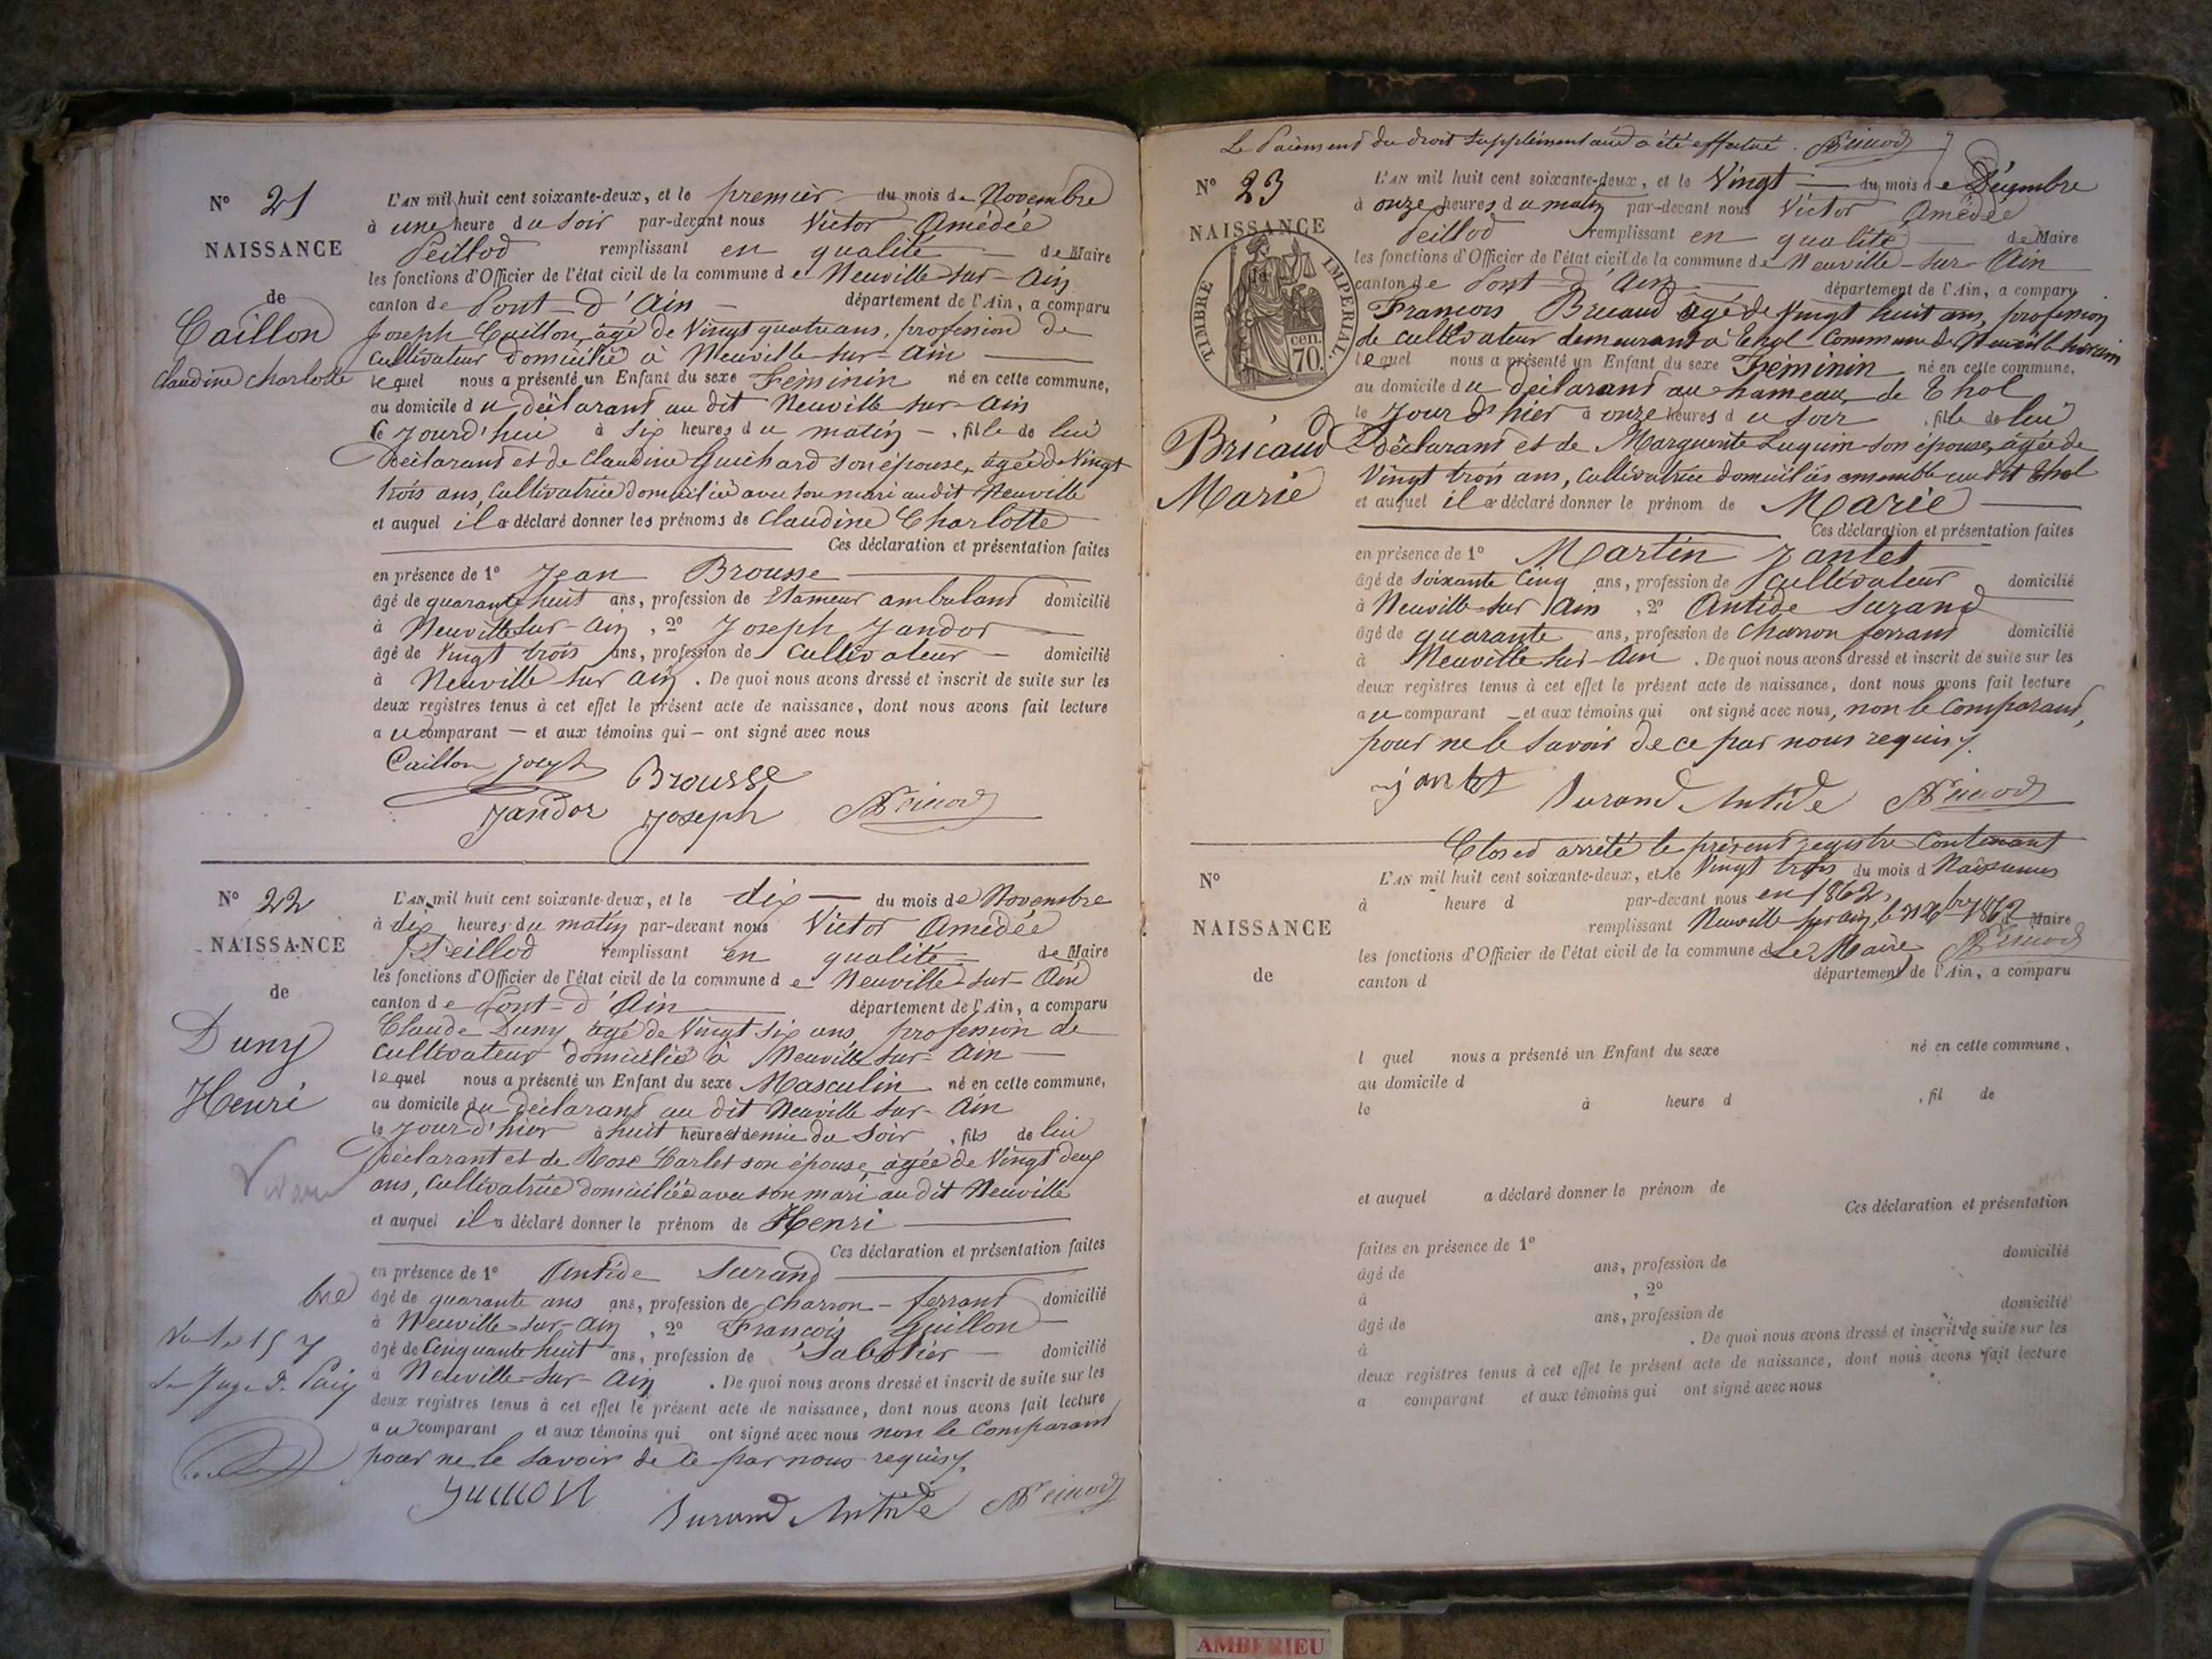 N° 21
NAISSANCE
de
Caillon
Claudine Charlotte
L'AN mil huit cent soixante-deux, et le premier du mois de Novembre
à une heure du Soir par-devant nous Victor Amédée
Peillod remplissant en qualité de Maire
les fonctions d'Officier de l'état civil de la commune de Neuville-sur-Ain
canton de Pont-d'Ain département de l'Ain, a comparu
Joseph Caillon, âgé de Vingt quatre ans, profession de
Cultivateur domicilié à Neuville-sur-Ain
lequel nous a présenté un Enfant du sexe Féminin né en cette commune,
au domicile du déclarant au dit Neuville-sur-Ain
le jourd'hui à six heures du matin, fille de lui
Déclarant et de Claudine Guichard son épouse, âgée de Vingt
trois ans, Cultivatrice domiciliée avec son mari audit Neuville
et auquel il a déclaré donner les prénoms de Claudine Charlotte
Ces déclaration et présentation faites
en présence de 1° Jean Brousse
âgé de quarante huit ans, profession de Etameur ambulant domicilié
à Neuville sur-Ain, 2° Joseph Jandor
âgé de Vingt trois ans, profession de Cultivateur domicilié
à Neuville sur Ain. De quoi nous avons dressé et inscrit de suite sur les
deux registres tenus à cet effet le présent acte de naissance, dont nous avons fait lecture
au comparant — et aux témoins qui — ont signé avec nous
Caillon Joseph Brousse
Jandor Joseph
N° 22
NAISSANCE
de
Duny
Henri
L'AN mil huit cent soixante-deux, et le dix du mois de Novembre
à dix heures du matin par-devant nous Victor Amédée
Peillod remplissant en qualité de Maire
les fonctions d'Officier de l'état civil de la commune de Neuville-sur-Ain
canton de Pont-d'Ain département de l'Ain, a comparu
Claude Duny, âgé de Vingt six ans, profession de
Cultivateur domicilié à Neuville sur-Ain
lequel nous a présenté un Enfant du sexe Masculin né en cette commune,
au domicile du déclarant au dit Neuville sur-Ain
le jour d'hier à huit heures et demie du Soir, fils de lui
Déclarant et de Rose Carlet son épouse, âgée de Vingt deux
ans, Cultivatrice domiciliée avec son mari au dit Neuville
et auquel il a déclaré donner le prénom de Henri
Ces déclaration et présentation faites
en présence de 1° Antide Durand
âgé de quarante ans ans, profession de Charron-ferrant domicilié
à Neuville-sur-Ain, 2° François Guillon
âgé de Cinquante huit ans, profession de Sabotier domicilié
à Neuville-sur-Ain. De quoi nous avons dressé et inscrit de suite sur les
deux registres tenus à cet effet le présent acte de naissance, dont nous avons fait lecture
au comparant et aux témoins qui ont signé avec nous non le Comparant
pour ne le savoir de ce par nous requis.
Guillon
Durand Antide
Le Paiement du droit Supplémentaire a été effectué.
N° 23
NAISSANCE
TIMBRE IMPERIAL
70 cen.
Bricaud
Marie
L'AN mil huit cent soixante-deux, et le Vingt du mois de Décembre
à onze heures du matin par-devant nous Victor Amédée
Peillod remplissant en qualité de Maire
les fonctions d'Officier de l'état civil de la commune de Neuville-sur-Ain
canton de Pont-d'Ain département de l'Ain, a comparu
François Bricaud âgé de Vingt huit ans, profession
de Cultivateur demeurant à Thol Commune de Neuville sur ain
lequel nous a présenté un Enfant du sexe Féminin né en cette commune,
au domicile du déclarant au hameau de Thol
le Jour d'hier à onze heures du Soir, fille de lui
déclarant et de Marguerite Luguin son épouse, âgée de
Vingt trois ans, Cultivatrice domiciliés ensemble au dit Thol
et auquel il a déclaré donner le prénom de Marie
Ces déclaration et présentation faites
en présence de 1° Martin Jantet
âgé de Soixante Cinq ans, profession de Cultivateur domicilié
à Neuville-sur Ain, 2° Antide Durand
âgé de quarante ans, profession de Charron ferrant domicilié
à Neuville sur-Ain. De quoi nous avons dressé et inscrit de suite sur les
deux registres tenus à cet effet le présent acte de naissance, dont nous avons fait lecture
au comparant — et aux témoins qui ont signé avec nous, non le Comparant,
pour ne le Savoir de ce par nous requis.
jantet
Durand Antide
Clos et arrêté le présent registre Contenant
N°
NAISSANCE
de
L'AN mil huit cent soixante-deux, et le Vingt trois du mois d Naissances
à heure d par-devant nous en 1862,
remplissant Neuville sur ain, le 31 Xbre 1862 Maire
les fonctions d'Officier de l'état civil de la commune d Le Maire
canton d département de l'Ain, a comparu
l quel nous a présenté un Enfant du sexe né en cette commune,
au domicile d
le à heure d, fil de
et auquel a déclaré donner le prénom de
Ces déclaration et présentation
faites en présence de 1°
âgé de ans, profession de domicilié
à, 2°
âgé de ans, profession de domicilié
à. De quoi nous avons dressé et inscrit de suite sur les
deux registres tenus à cet effet le présent acte de naissance, dont nous avons fait lecture
a comparant et aux témoins qui ont signé avec nous
AMBERIEU